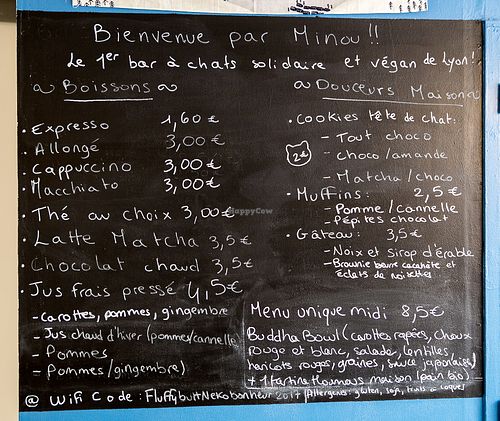 Bienvenue par Minou !!
Le 1er bar à chats solidaire et végan de Lyon !
~ Boissons ~
. Expresso 1,60 €
. Allongé 3,00 €
. Cappuccino 3,00 €
. Macchiato 3,00 €
. Thé au choix 3,00 €
. Latte Matcha 3,5 €
. Chocolat chaud 3,5 €
. Jus frais pressé 4,5 €
- Carottes, pommes, gingembre
- Jus chaud d'hiver (pommes/cannelle)
- Pommes
- Pommes/gingembre)
~ Douceurs Maison ~
. Cookies tête de chat :
2€
- Tout choco
- choco/amande
- Matcha/choco
. Muffins : 2,5 €
- Pomme/cannelle
- Pépites chocolat
. Gâteau : 3,5 €
- Noix et Sirop d'érable
- Brownie beurre cacahète et
éclats de noisettes
Menu unique midi 8,5 €
Buddha Bowl (carottes rapées, choux
rouge et blanc, salade, lentilles,
haricots rouges, graines, sauce japonaise)
+ 1 tartine Houmous maison (pain bio)
@ Wifi Code : FluffybuttNekobonheur2017 (Allergènes : gluten, soja, fruits à coques)
HappyCow